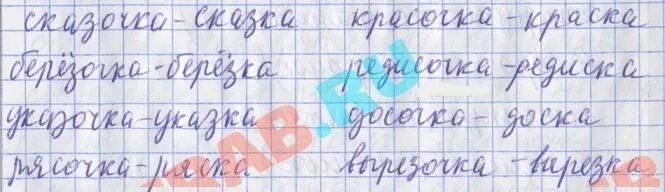 сказочка-сказка красочка-краска
берёзочка-берёзка редисочка-редиска
указочка-указка досочка-доска
рясочка-ряска вырезочка-вырезка